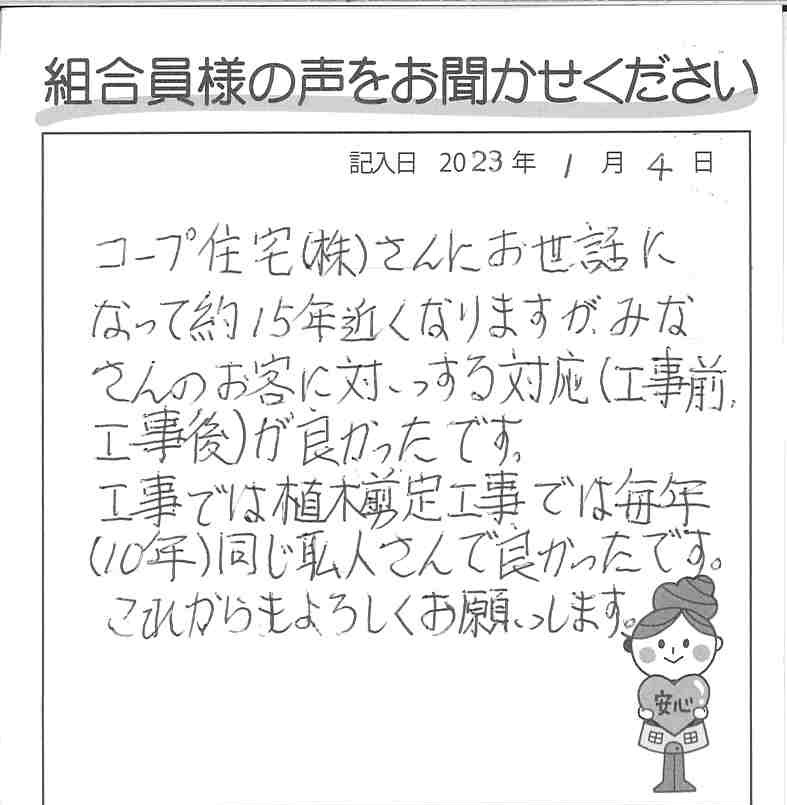 組合員様の声をお聞かせください
記入日 2023年 1月 4日
コープ住宅(株)さんにお世話に
なって約15年近くなりますが、みな
さんのお客に対っする対応(工事前、
工事後)が良かったです。
工事では植木剪定工事では毎年
(10年)同じ人さんで良かったです。
これからもよろしくお願いします。
安心